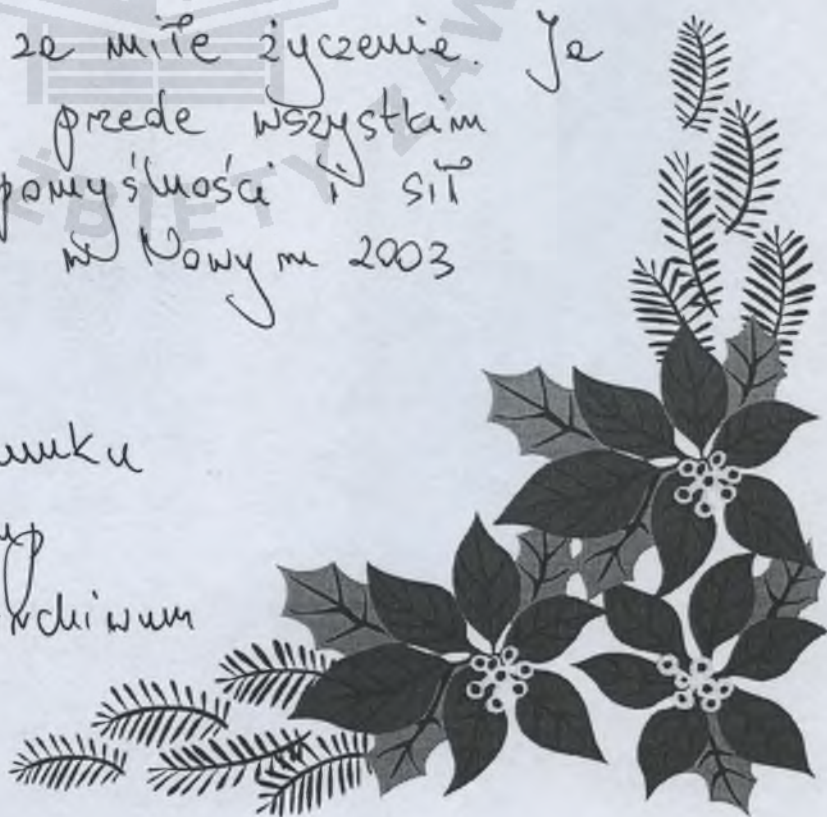 za miłe życzenia. Ja
przede wszystkim
pomyślności i sił
w Nowym 2003
unku
up
rchiwum
BIETY ZAW